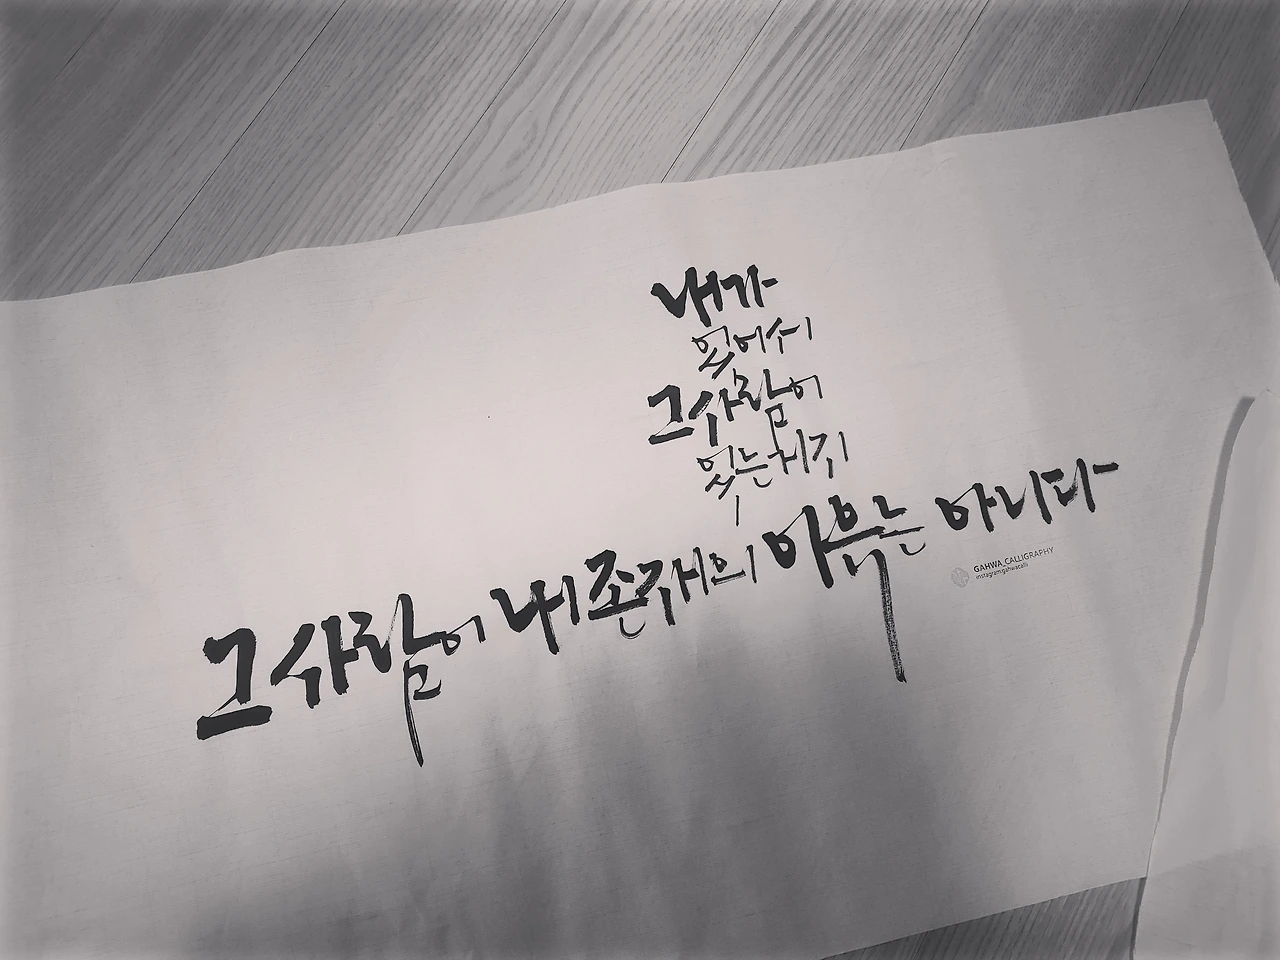 내가
있어서
그 사람이
있는 거지
그 사람이 내 존재의 이유는 아니다
GAHWA_CALLIGRAPHY
instagram:gahwacalli